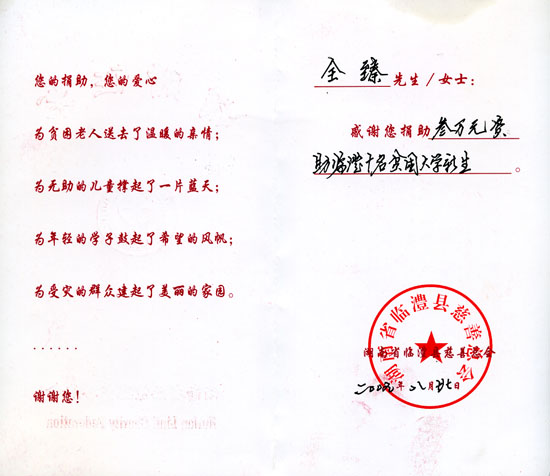 您的捐助，您的爱心
为贫困老人送去了温暖的亲情；
为无助的儿童撑起了一片蓝天；
为年轻的学子鼓起了希望的风帆；
为受灾的群众建起了美丽的家园。
......
谢谢您！
全臻先生／女士：
感谢您捐助叁万元资
助临澧十名贫困大学新生。
湖南省临澧县慈善总会
湖南省临澧县慈善总会
年八月廿七日